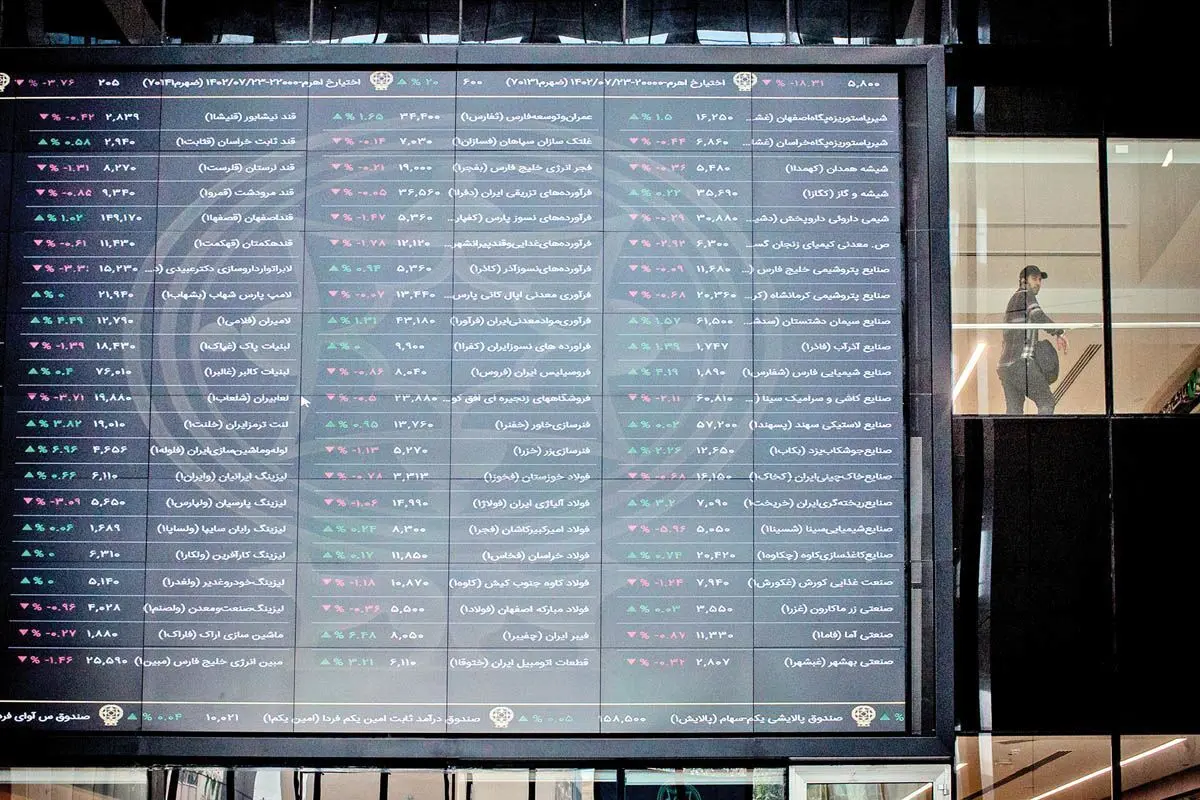 ۵,۸۰۰ ▼ % -۱۸.۳۱ اختیارخ اهرم-۲۰۰۰۰-۱۴۰۲/۰۷/۲۳ (ضهرم۷۰۱۳۱) ۶۰۰ ▲ % ۲۰ اختیارخ اهرم-۲۲۰۰۰-۱۴۰۲/۰۷/۲۳ (ضهرم۷۰۱۴۱) ۲۰۵ ▼ % -۳.۷۶
شیرپاستوریزه‌پگاه‌اصفهان (غش... ۱۶,۲۵۰ ▲ % ۱.۵ عمران‌وتوسعه‌فارس (ثفارس۱) ۳۴,۴۰۰ ▲ % ۱.۶۵ قند نیشابور (قنیشا۱) ۲,۸۳۹ ▼ % -۰.۴۲
شیرپاستوریزه‌پگاه‌خراسان (غشا... ۶,۸۶۰ ▼ % -۰.۴۴ غلتک سازان سپاهان (فسازان۱) ۷,۰۳۰ ▼ % -۰.۱۴ قند ثابت خراسان (قثابت۱) ۲,۹۴۰ ▲ % ۰.۵۸
شیشه همدان (کهمدا۱) ۵,۴۸۰ ▼ % -۰.۳۶ فجر انرژی خلیج فارس (بفجر۱) ۱۹,۰۰۰ ▼ % -۰.۲۱ قند لرستان (قلرست۱) ۸,۲۷۰ ▼ % -۱.۳۱
شیشه و گاز (کگاز۱) ۳۵,۶۹۰ ▲ % ۰.۲۲ فرآورده‌های تزریقی ایران (دفرا۱) ۳۶,۵۶۰ ▼ % -۰.۰۵ قند مرودشت (قمرو۱) ۹,۳۴۰ ▼ % -۰.۸۵
شیمی داروئی داروپخش (دشی... ۳۰,۸۸۰ ▼ % -۰.۲۹ فرآورده‌های نسوز پارس (کفپار... ۵,۳۶۰ ▼ % -۱.۴۷ قنداصفهان (قصفها۱) ۱۴۹,۱۷۰ ▲ % ۱.۰۲
ص. معدنی کیمیای زنجان گس... ۶,۳۰۰ ▼ % -۲.۹۲ فرآورده‌های‌غذایی‌وقندپیرانشهر... ۱۲,۱۲۰ ▼ % -۱.۷۸ قندهکمتان (قهکمت۱) ۱۱,۴۳۰ ▼ % -۰.۶۱
صنایع پتروشیمی خلیج فارس (... ۱۱,۶۸۰ ▼ % -۰.۰۹ فرآورده‌های‌نسوزآذر (کاذر۱) ۵,۳۶۰ ▲ % ۰.۹۴ لابراتوارداروسازی دکترعبیدی (د... ۱۵,۲۳۰ ▼
صنایع پتروشیمی کرمانشاه (کر... ۲۰,۳۶۰ ▼ % -۰.۶۸ فرآوری معدنی اپال کانی پارس... ۱۳,۴۴۰ ▼ % -۰.۰۷ لامپ پارس شهاب (بشهاب۱) ۲۱,۹۴۰ ▲ % ۰
صنایع سیمان دشتستان (سدشت... ۶۱,۵۰۰ ▲ % ۱.۵۷ فرآوری‌موادمعدنی‌ایران (فرآور۱) ۴۳,۱۸۰ ▲ % ۱.۳۱ لامیران (فلامی۱) ۱۲,۷۹۰ ▲ % ۴.۴۹
صنایع آذرآب (فاذر۱) ۱,۷۴۷ ▲ % ۱.۳۹ فراورده های نسوزایران (کفرا۱) ۹,۹۰۰ ▲ % ۰ لبنیات پاک (غپاک۱) ۱۸,۴۳۰ ▼ % -۱.۳۹
صنایع شیمیایی فارس (شفارس۱) ۱,۸۹۰ ▲ % ۴.۱۹ فروسیلیس ایران (فروس۱) ۸,۰۴۰ ▼ % -۰.۸۶ لبنیات کالبر (غالبر۱) ۷۶,۰۱۰ ▲ % ۰.۴
صنایع کاشی و سرامیک سینا (... ۶۰,۸۱۰ ▼ % -۲.۱۱ فروشگاههای زنجیره ای افق کو... ۲۳,۸۸۰ ▼ % -۰.۵ لعابیران (شلعاب۱) ۱۹,۸۸۰ ▼ % -۳.۷۱
صنایع لاستیکی سهند (پسهند۱) ۵۷,۲۰۰ ▲ % ۰.۰۲ فنرسازی‌خاور (خفنر۱) ۱۳,۷۶۰ ▲ % ۰.۹۵ لنت ترمزایران (خلنت۱) ۱۹,۰۱۰ ▲ % ۳.۸۲
صنایع‌جوشکاب‌یزد (بکاب۱) ۱۲,۶۵۰ ▲ % ۲.۲۶ فنرسازی‌زر (خزر۱) ۵,۲۷۰ ▼ % -۱.۱۳ لوله‌وماشین‌سازی‌ایران (فلوله۱) ۴,۶۵۶ ▲ % ۶.۹۶
صنایع‌خاک‌چینی‌ایران (کخاک۱) ۱۶,۱۵۰ ▼ % -۰.۶۸ فولاد خوزستان (فخوز۱) ۳,۳۱۳ ▼ % -۰.۷۸ لیزینگ ایرانیان (وایران۱) ۶,۱۱۰ ▲ % ۰.۶۶
صنایع‌ریخته‌گری‌ایران (خریخت۱) ۷,۰۹۰ ▲ % ۳.۲ فولاد آلیاژی ایران (فولاژ۱) ۱۴,۹۹۰ ▼ % -۱.۰۶ لیزینگ پارسیان (ولپارس۱) ۵,۶۵۰ ▼ % -۳.۰۹
صنایع‌شیمیایی‌سینا (شسینا۱) ۵,۰۵۰ ▼ % -۵.۹۶ فولاد امیرکبیرکاشان (فجر۱) ۸,۳۰۰ ▲ % ۰.۲۴ لیزینگ رایان سایپا (ولساپا۱) ۱,۶۸۹ ▲ % ۰.۰۶
صنایع‌کاغذسازی‌کاوه (چکاوه۱) ۲۰,۴۲۰ ▲ % ۰.۷۴ فولاد خراسان (فخاس۱) ۱۱,۸۵۰ ▲ % ۰.۱۷ لیزینگ کارآفرین (ولکار۱) ۶,۳۱۰ ▲ % ۰
صنعت غذایی کورش (غکورش۱) ۷,۹۴۰ ▼ % -۱.۲۴ فولاد کاوه جنوب کیش (کاوه۱) ۱۰,۸۷۰ ▼ % -۱.۱۸ لیزینگ‌خودروغدیر (ولغدر۱) ۵,۱۴۰ ▲ % ۰
صنعتی زر ماکارون (غزر۱) ۳,۵۵۰ ▲ % ۰.۰۳ فولاد مبارکه اصفهان (فولاد۱) ۵,۵۰۰ ▼ % -۰.۳۶ لیزینگ‌صنعت‌ومعدن (ولصنم۱) ۴,۰۲۸ ▼ % -۰.۹۶
صنعتی آما (فاما۱) ۱۱,۳۳۰ ▼ % -۰.۸۷ فیبر ایران (چفیبر۱) ۸,۰۵۰ ▲ % ۶.۴۸ ماشین سازی اراک (فاراک۱) ۱,۸۸۰ ▼ % -۰.۲۷
صنعتی بهشهر (غبشهر۱) ۲,۸۰۷ ▼ % -۰.۳۲ قطعات اتومبیل ایران (ختوقا۱) ۶,۱۱۰ ▲ % ۳.۲۱ مبین انرژی خلیج فارس (مبین۱) ۲۵,۵۹۰ ▼ % -۱.۴۶
% ▲ صندوق پالایشی یکم-سهام (پالایش۱) ۱۵۸,۵۰۰ ▲ % ۰.۰۵ صندوق درآمد ثابت امین یکم فردا (امین یکم۱) ۱۰,۰۲۱ ▲ % ۰.۰۴ صندوق س آوای فر